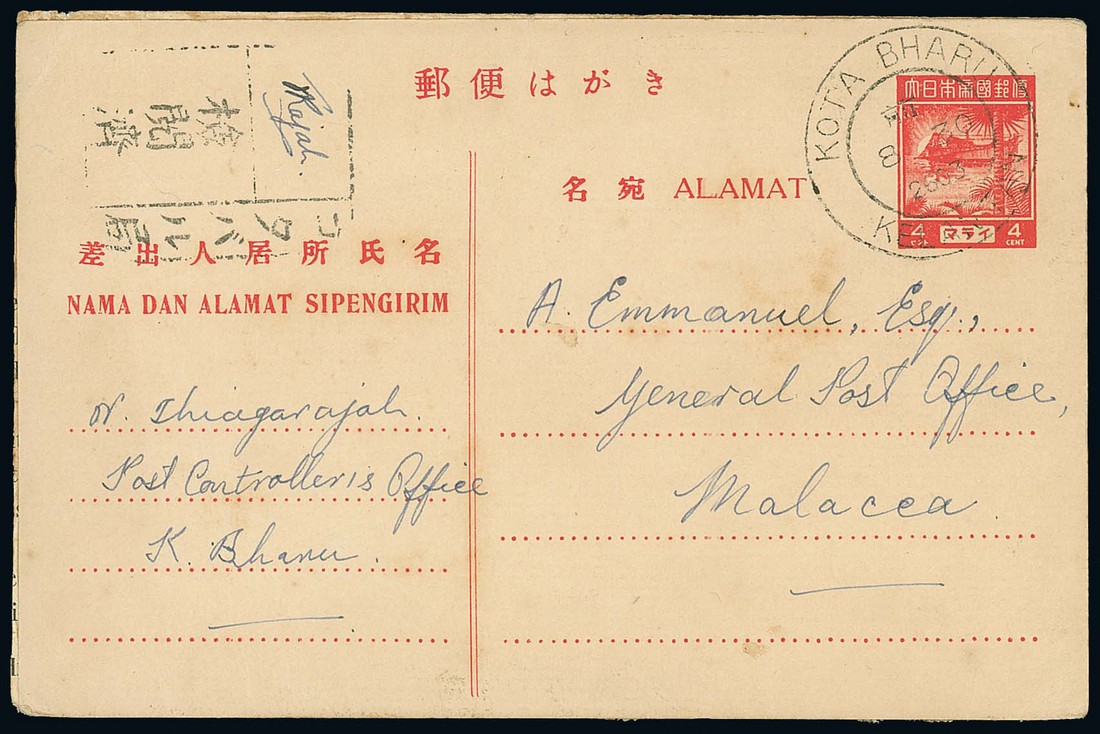 郵便はがき
検閲済
Rajah.
コタバル局
差出人居所氏名
NAMA DAN ALAMAT SIPENGIRIM
N. Thiagarajah.
Post Controller's Office
K. Bharu.
KOTA BHARU
8 NO
2603
大日本帝國郵便
4 CENT マライ 4 CENT
名宛 ALAMAT
A. Emmanuel, Esq.,
General Post Office,
Malacca.